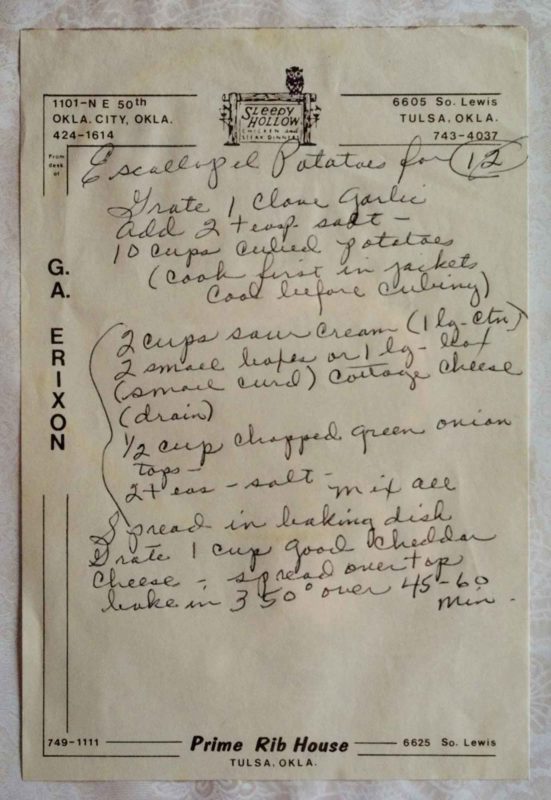 1101-N E 50th
OKLA. CITY, OKLA.
424-1614
SLEEPY
HOLLOW
CHICKEN and
STEAK DINNERS
6605 So. Lewis
TULSA, OKLA.
743-4037
From
desk
of
G.
A.
ERIXON
Escalloped Potatoes for 12
Grate 1 clove Garlic
add 2 teasp salt -
10 cups cubed potatoes
(cook first in jackets
cool before cubing)
2 cups sour cream (1 lg. ctn)
2 small boxes or 1 lg. box
(small curd) cottage cheese
(drain)
1/2 cup chopped green onion
tops -
2 teas - salt - mix all
Spread in baking dish
Grate 1 cup good cheddar
cheese - spread over top
bake in 350° over 45-60
min.
749-1111
Prime Rib House
6625 So. Lewis
TULSA, OKLA.